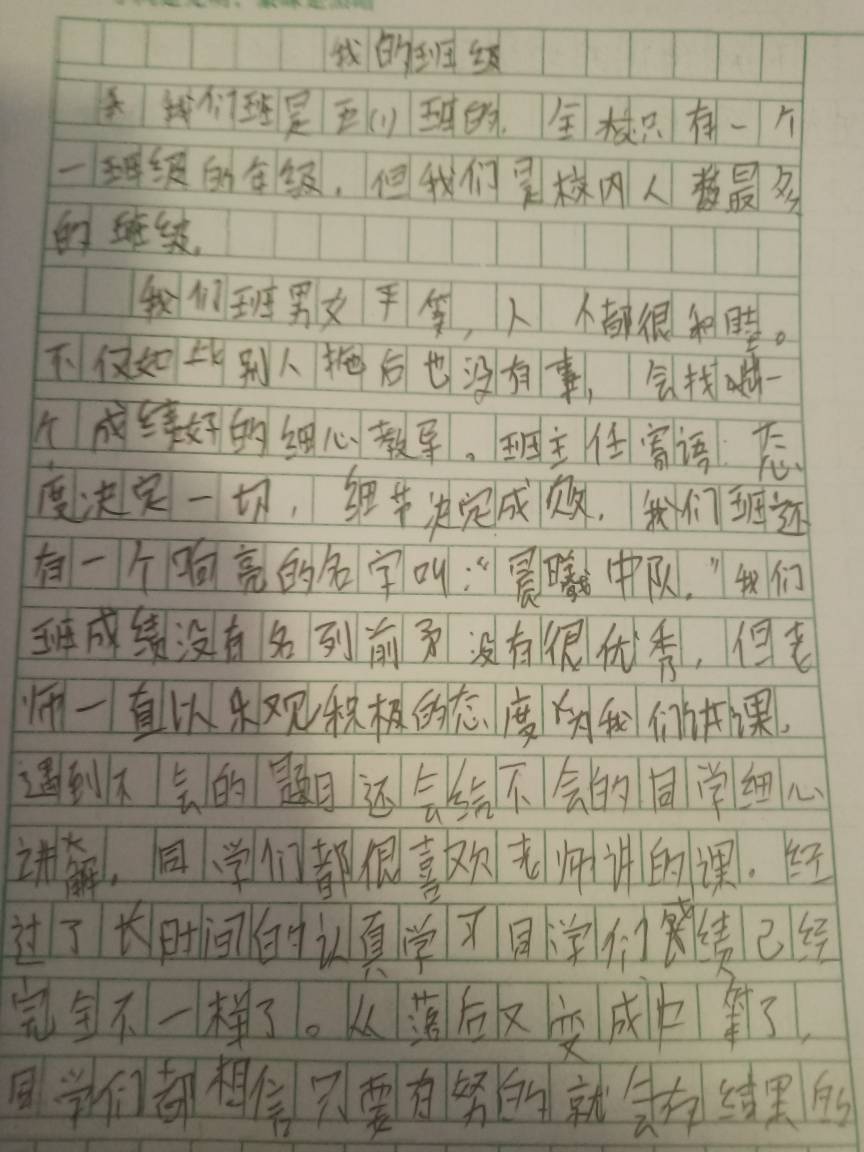 我的班级
我们班是五(1)班的,全校只有一个
一班级的年级,但我们是校内人数最多
的班级。
我们班男女平等,人人都很和睦。
不仅如此别人拖后也没有事,会找一
个成绩好的细心教导。班主任寄语:态
度决定一切,细节决定成败。我们班还
有一个响亮的名字叫:“晨曦中队。”我们
班成绩没有名列前矛没有很优秀,但老
师一直以乐观积极的态度为我们讲课,
遇到不会的题目还会给不会的同学细心
讲解。同学们都很喜欢老师讲的课。经
过了长时间的认真学习同学们成绩已经
完全不一样了。从落后又变成中等了,
同学们都相信只要有努的就会有结果的